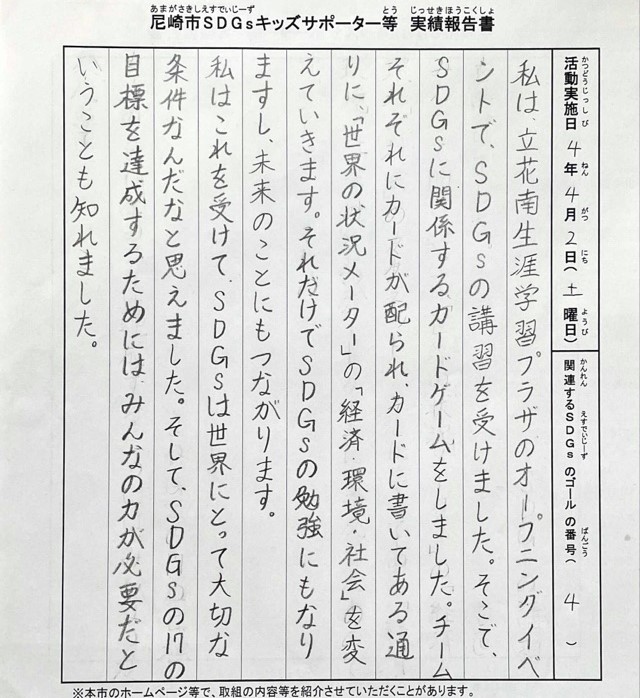 あまがさきしえすでぃじーず とう じっせきほうこくしょ
尼崎市SDGsキッズサポーター等 実績報告書
かつどうじっしび ねん がつ にち ようび
活動実施日 4年4月2日(土曜日)
かんれん えすでぃじーず ばんごう
関連するSDGsのゴールの番号(4)
私は、立花南生涯学習プラザのオープニングイベ
ントで、SDGsの講習を受けました。そこで、
SDGsに関係するカードゲームをしました。チーム
それぞれにカードが配られ、カードに書いてある通
りに、「世界の状況メーター」の「経済・環境・社会」を変
えていきます。それだけでSDGsの勉強にもなり
ますし、未来のことにもつながります。
私はこれを受けて、SDGsは世界にとって大切な
条件なんだなと思えました。そして、SDGsの17の
目標を達成するためには、みんなの力が必要だと
いうことも知れました。
※本市のホームページ等で、取組の内容等を紹介させていただくことがあります。